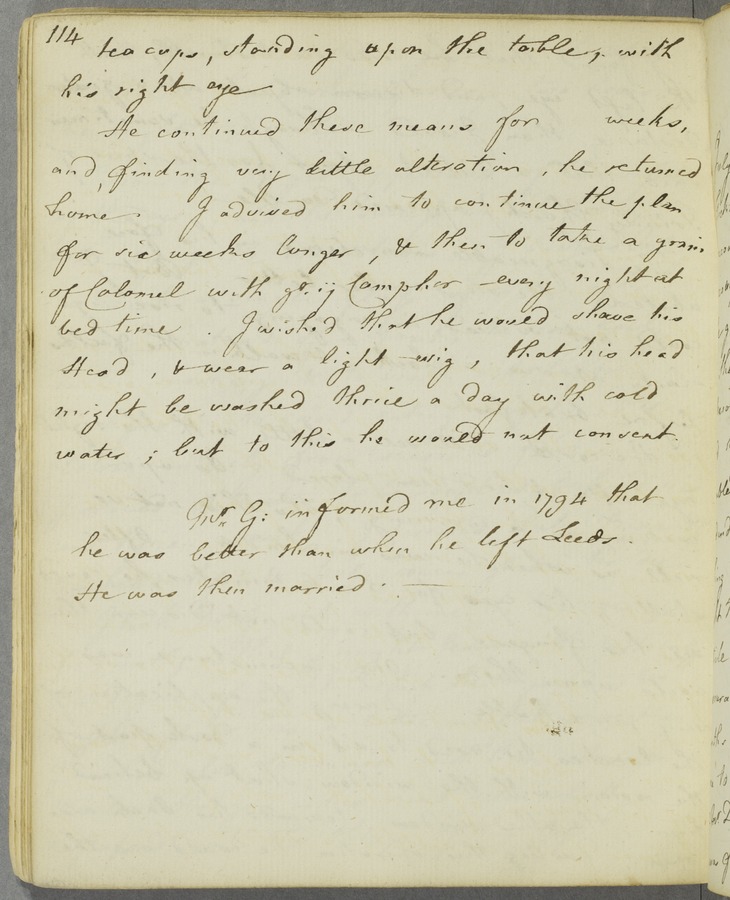 114
tea cups, standing upon the table, with
his right eye
He continued these means for weeks,
and, finding very little alteration, he returned
home. I advised him to continue the plan
for six weeks longer, & then to take a grain
of Calomel with gr. ij Camphor every night at
bed time. I wished that he would shave his
Head, & wear a light wig, that his head
might be washed thrice a day with cold
water; but to this he would not consent.
Mr. G: informed me in 1794 that
he was better than when he left Leeds.
He was then married. —